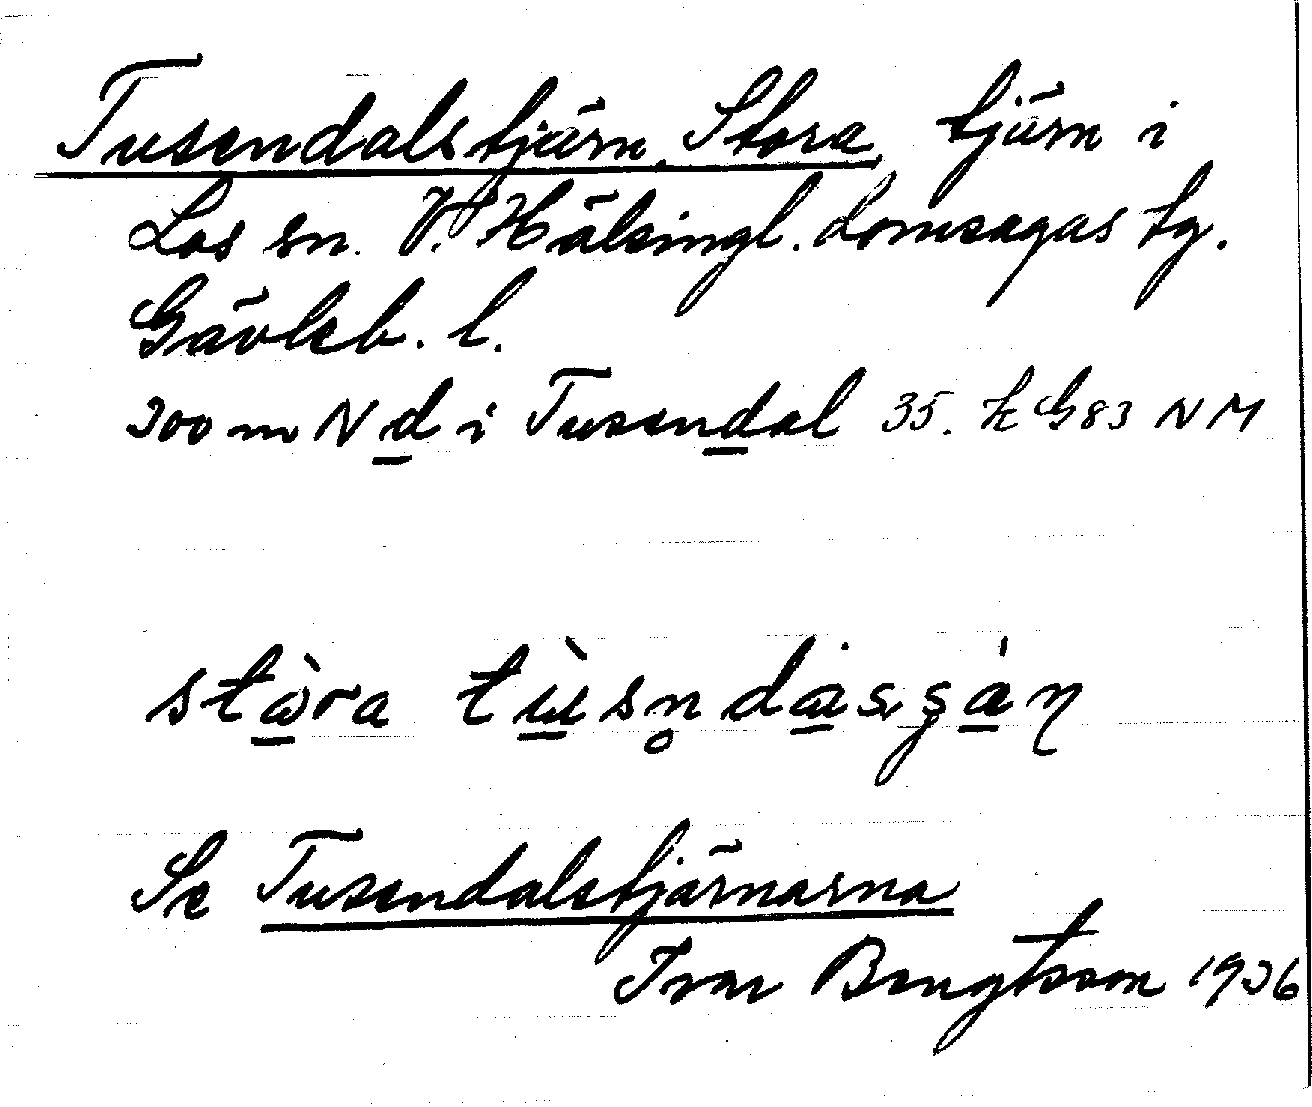 Tusendalstjärn, Stora, tjärn i
Los sn. V. Hälsingl. domsagas tg.
Gävleb. l.
300 m N d i Tusendal 35. k G83 NM
stɷ̀ra tùsn̥dàsşán
Se Tusendalstjärnarna
Ivar Bengtsson 1936